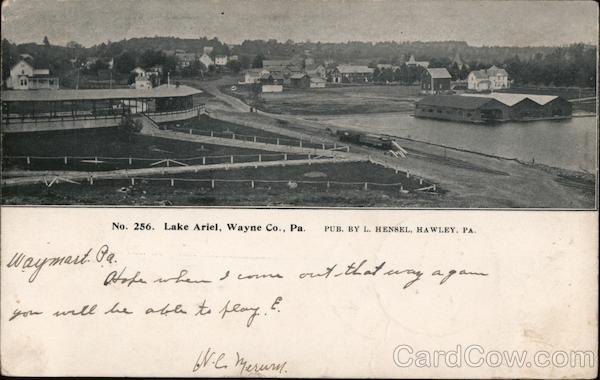 No. 256. Lake Ariel, Wayne Co., Pa. PUB. BY L. HENSEL, HAWLEY, PA.
Waymart. Pa.
Hope when I come out that way again
you will be able to play. E.
W. C.
CardCow.com